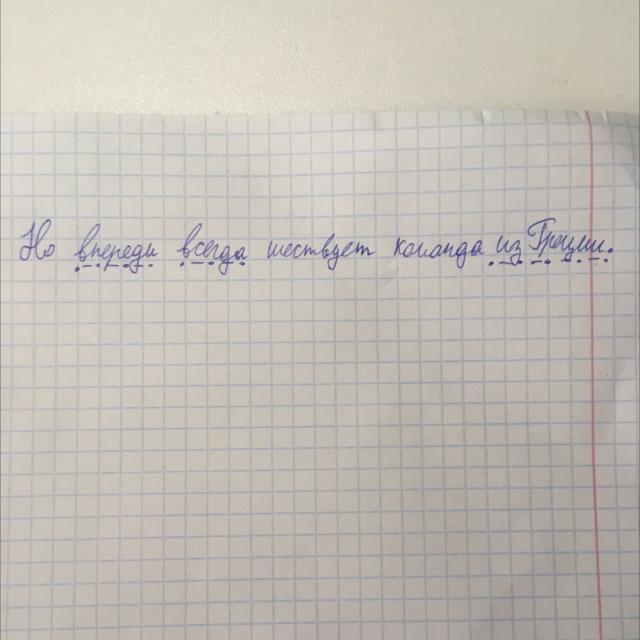 Но впереди всегда шествует команда из Греции.